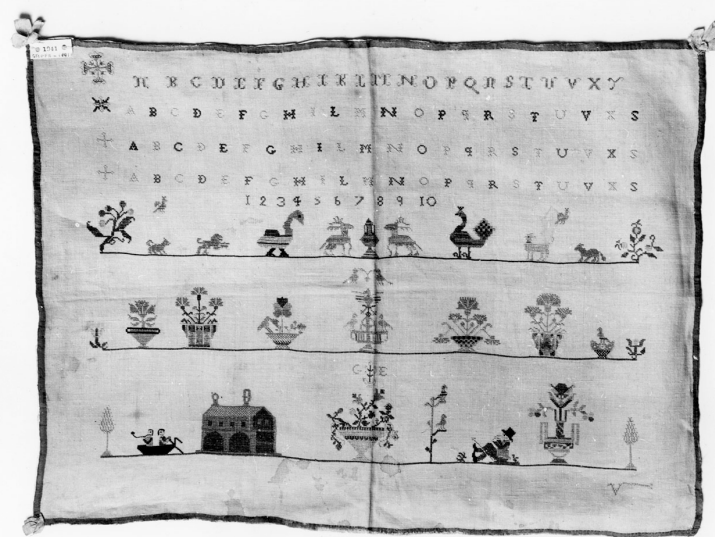 A B C D E F G H I K L M N O P Q R S T U V X Y
A B C D E F G H I L M N O P q R S T U V X S
A B C D E F G H I L M N O P q R S T U V X S
A B C D E F G H I L M N O P q R S T U V X S
1 2 3 4 5 6 7 8 9 10